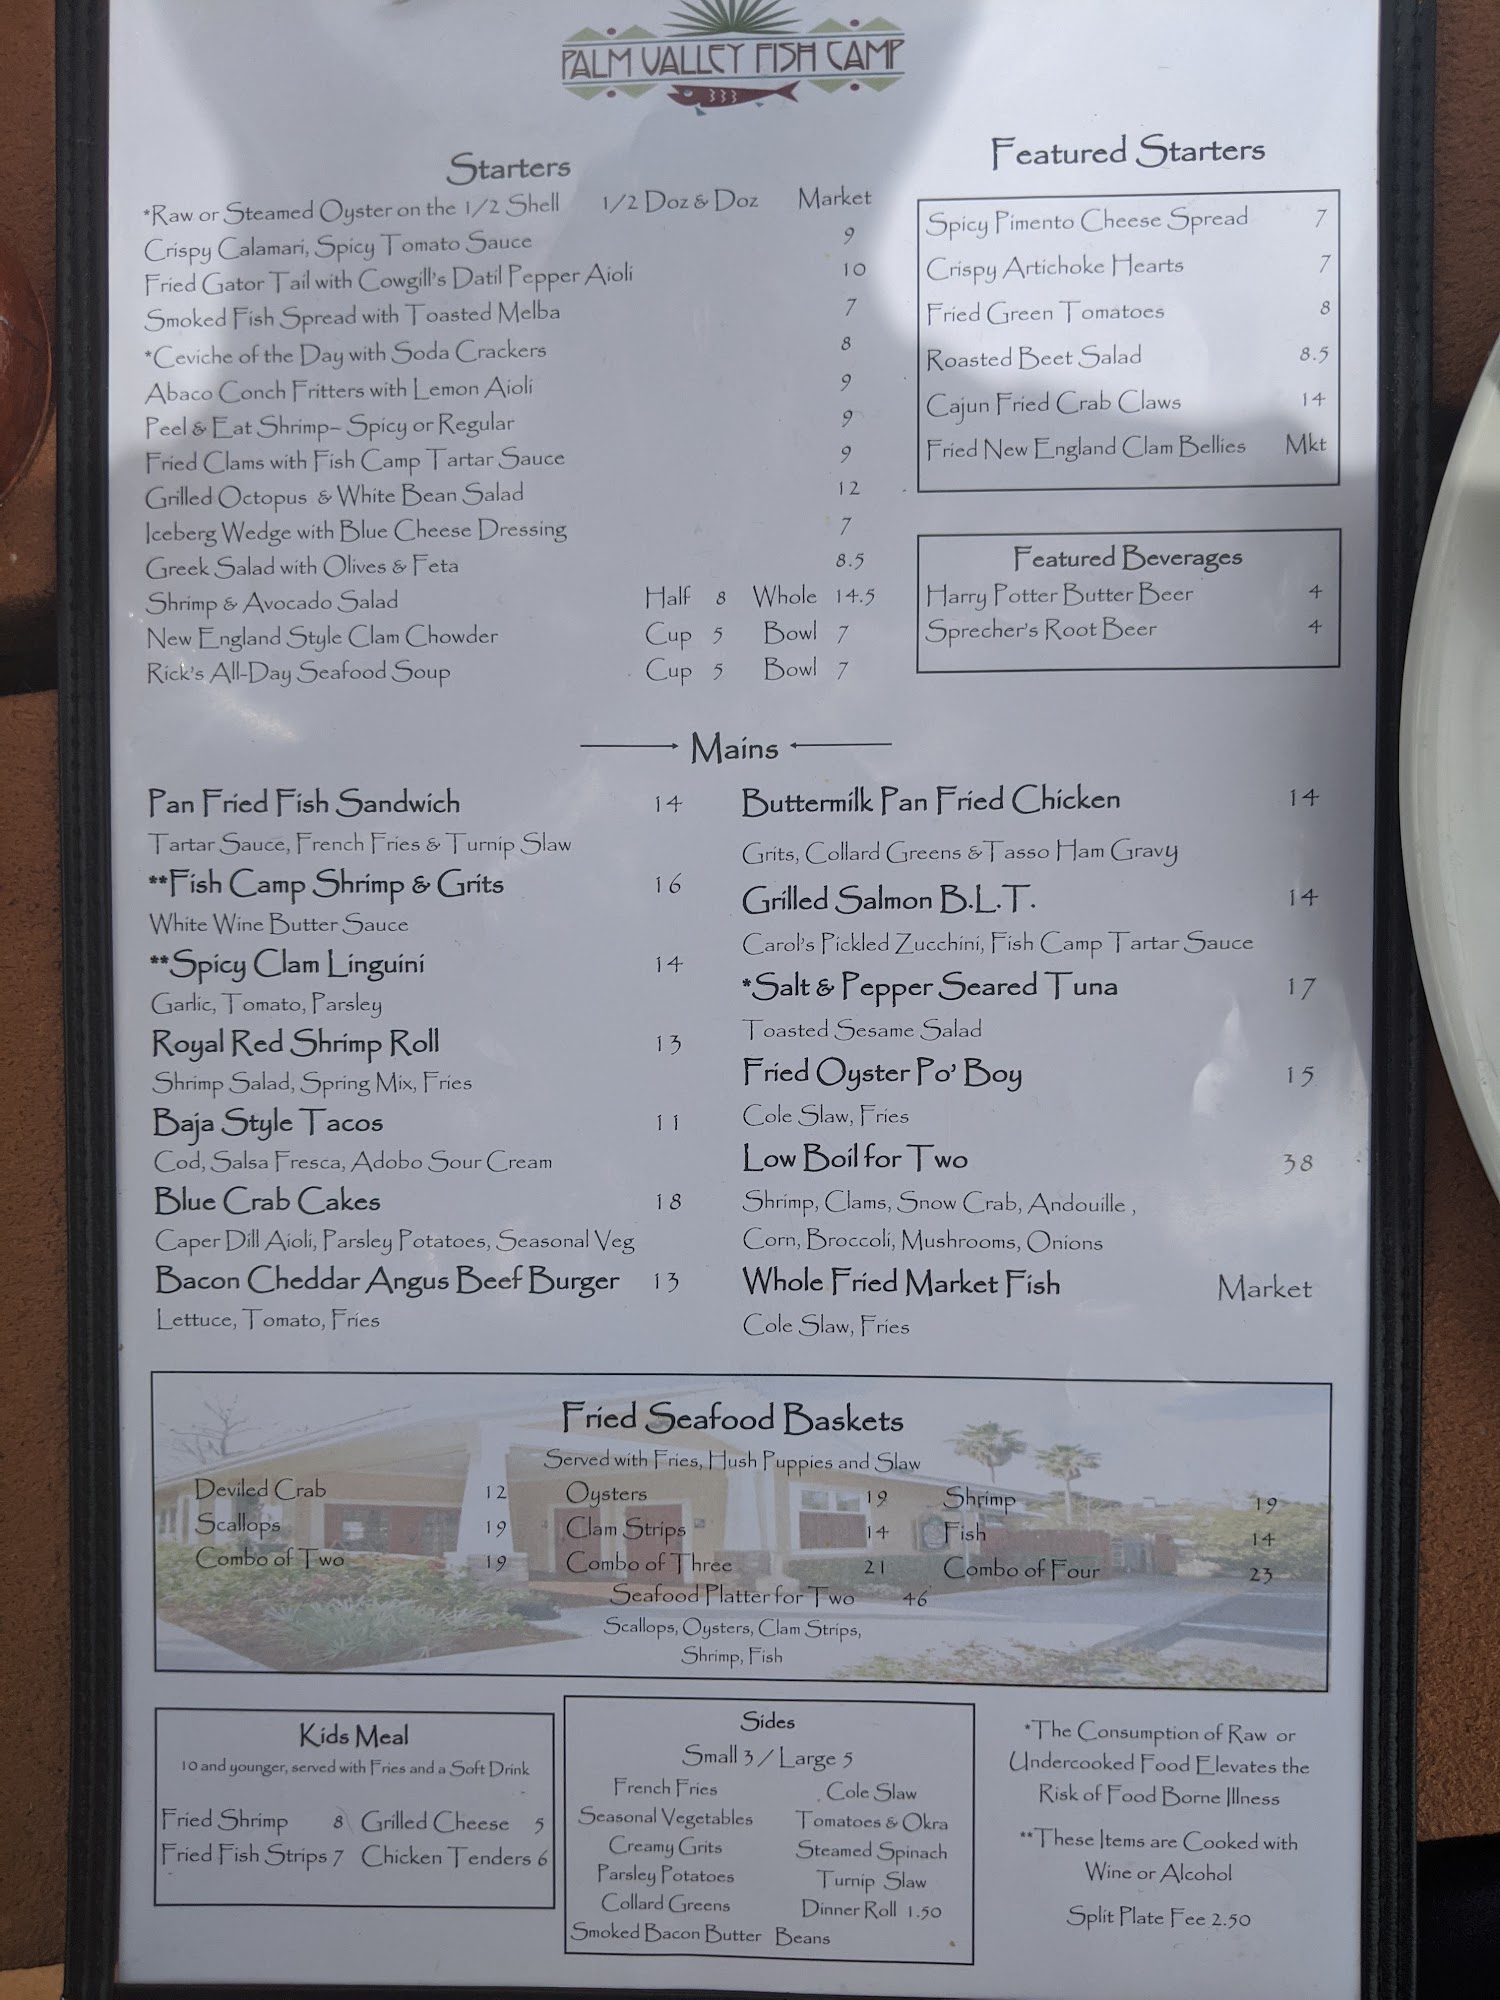 PALM VALLEY FISH CAMP
Starters
*Raw or Steamed Oyster on the 1/2 Shell 1/2 Doz & Doz Market
Crispy Calamari, Spicy Tomato Sauce 9
Fried Gator Tail with Cowgill's Datil Pepper Aioli 10
Smoked Fish Spread with Toasted Melba 7
*Ceviche of the Day with Soda Crackers 8
Abaco Conch Fritters with Lemon Aioli 9
Peel & Eat Shrimp– Spicy or Regular 9
Fried Clams with Fish Camp Tartar Sauce 9
Grilled Octopus & White Bean Salad 12
Iceberg Wedge with Blue Cheese Dressing 7
Greek Salad with Olives & Feta 8.5
Shrimp & Avocado Salad Half 8 Whole 14.5
New England Style Clam Chowder Cup 5 Bowl 7
Rick's All-Day Seafood Soup Cup 5 Bowl 7
Featured Starters
Spicy Pimento Cheese Spread 7
Crispy Artichoke Hearts 7
Fried Green Tomatoes 8
Roasted Beet Salad 8.5
Cajun Fried Crab Claws 14
Fried New England Clam Bellies Mkt
Featured Beverages
Harry Potter Butter Beer 4
Sprecher's Root Beer 4
Mains
Pan Fried Fish Sandwich 14
Tartar Sauce, French Fries & Turnip Slaw
**Fish Camp Shrimp & Grits 16
White Wine Butter Sauce
**Spicy Clam Linguini 14
Garlic, Tomato, Parsley
Royal Red Shrimp Roll 13
Shrimp Salad, Spring Mix, Fries
Baja Style Tacos 11
Cod, Salsa Fresca, Adobo Sour Cream
Blue Crab Cakes 18
Caper Dill Aioli, Parsley Potatoes, Seasonal Veg
Bacon Cheddar Angus Beef Burger 13
Lettuce, Tomato, Fries
Buttermilk Pan Fried Chicken 14
Grits, Collard Greens & Tasso Ham Gravy
Grilled Salmon B.L.T. 14
Carol's Pickled Zucchini, Fish Camp Tartar Sauce
*Salt & Pepper Seared Tuna 17
Toasted Sesame Salad
Fried Oyster Po' Boy 15
Cole Slaw, Fries
Low Boil for Two 38
Shrimp, Clams, Snow Crab, Andouille ,
Corn, Broccoli, Mushrooms, Onions
Whole Fried Market Fish Market
Cole Slaw, Fries
Fried Seafood Baskets
Served with Fries, Hush Puppies and Slaw
Deviled Crab 12 Oysters 19 Shrimp 19
Scallops 19 Clam Strips 14 Fish 14
Combo of Two 19 Combo of Three 21 Combo of Four 23
Seafood Platter for Two 46
Scallops, Oysters, Clam Strips,
Shrimp, Fish
Kids Meal
10 and younger, served with Fries and a Soft Drink
Fried Shrimp 8 Grilled Cheese 5
Fried Fish Strips 7 Chicken Tenders 6
Sides
Small 3 / Large 5
French Fries Cole Slaw
Seasonal Vegetables Tomatoes & Okra
Creamy Grits Steamed Spinach
Parsley Potatoes Turnip Slaw
Collard Greens Dinner Roll 1.50
Smoked Bacon Butter Beans
*The Consumption of Raw or
Undercooked Food Elevates the
Risk of Food Borne Illness
**These Items are Cooked with
Wine or Alcohol
Split Plate Fee 2.50